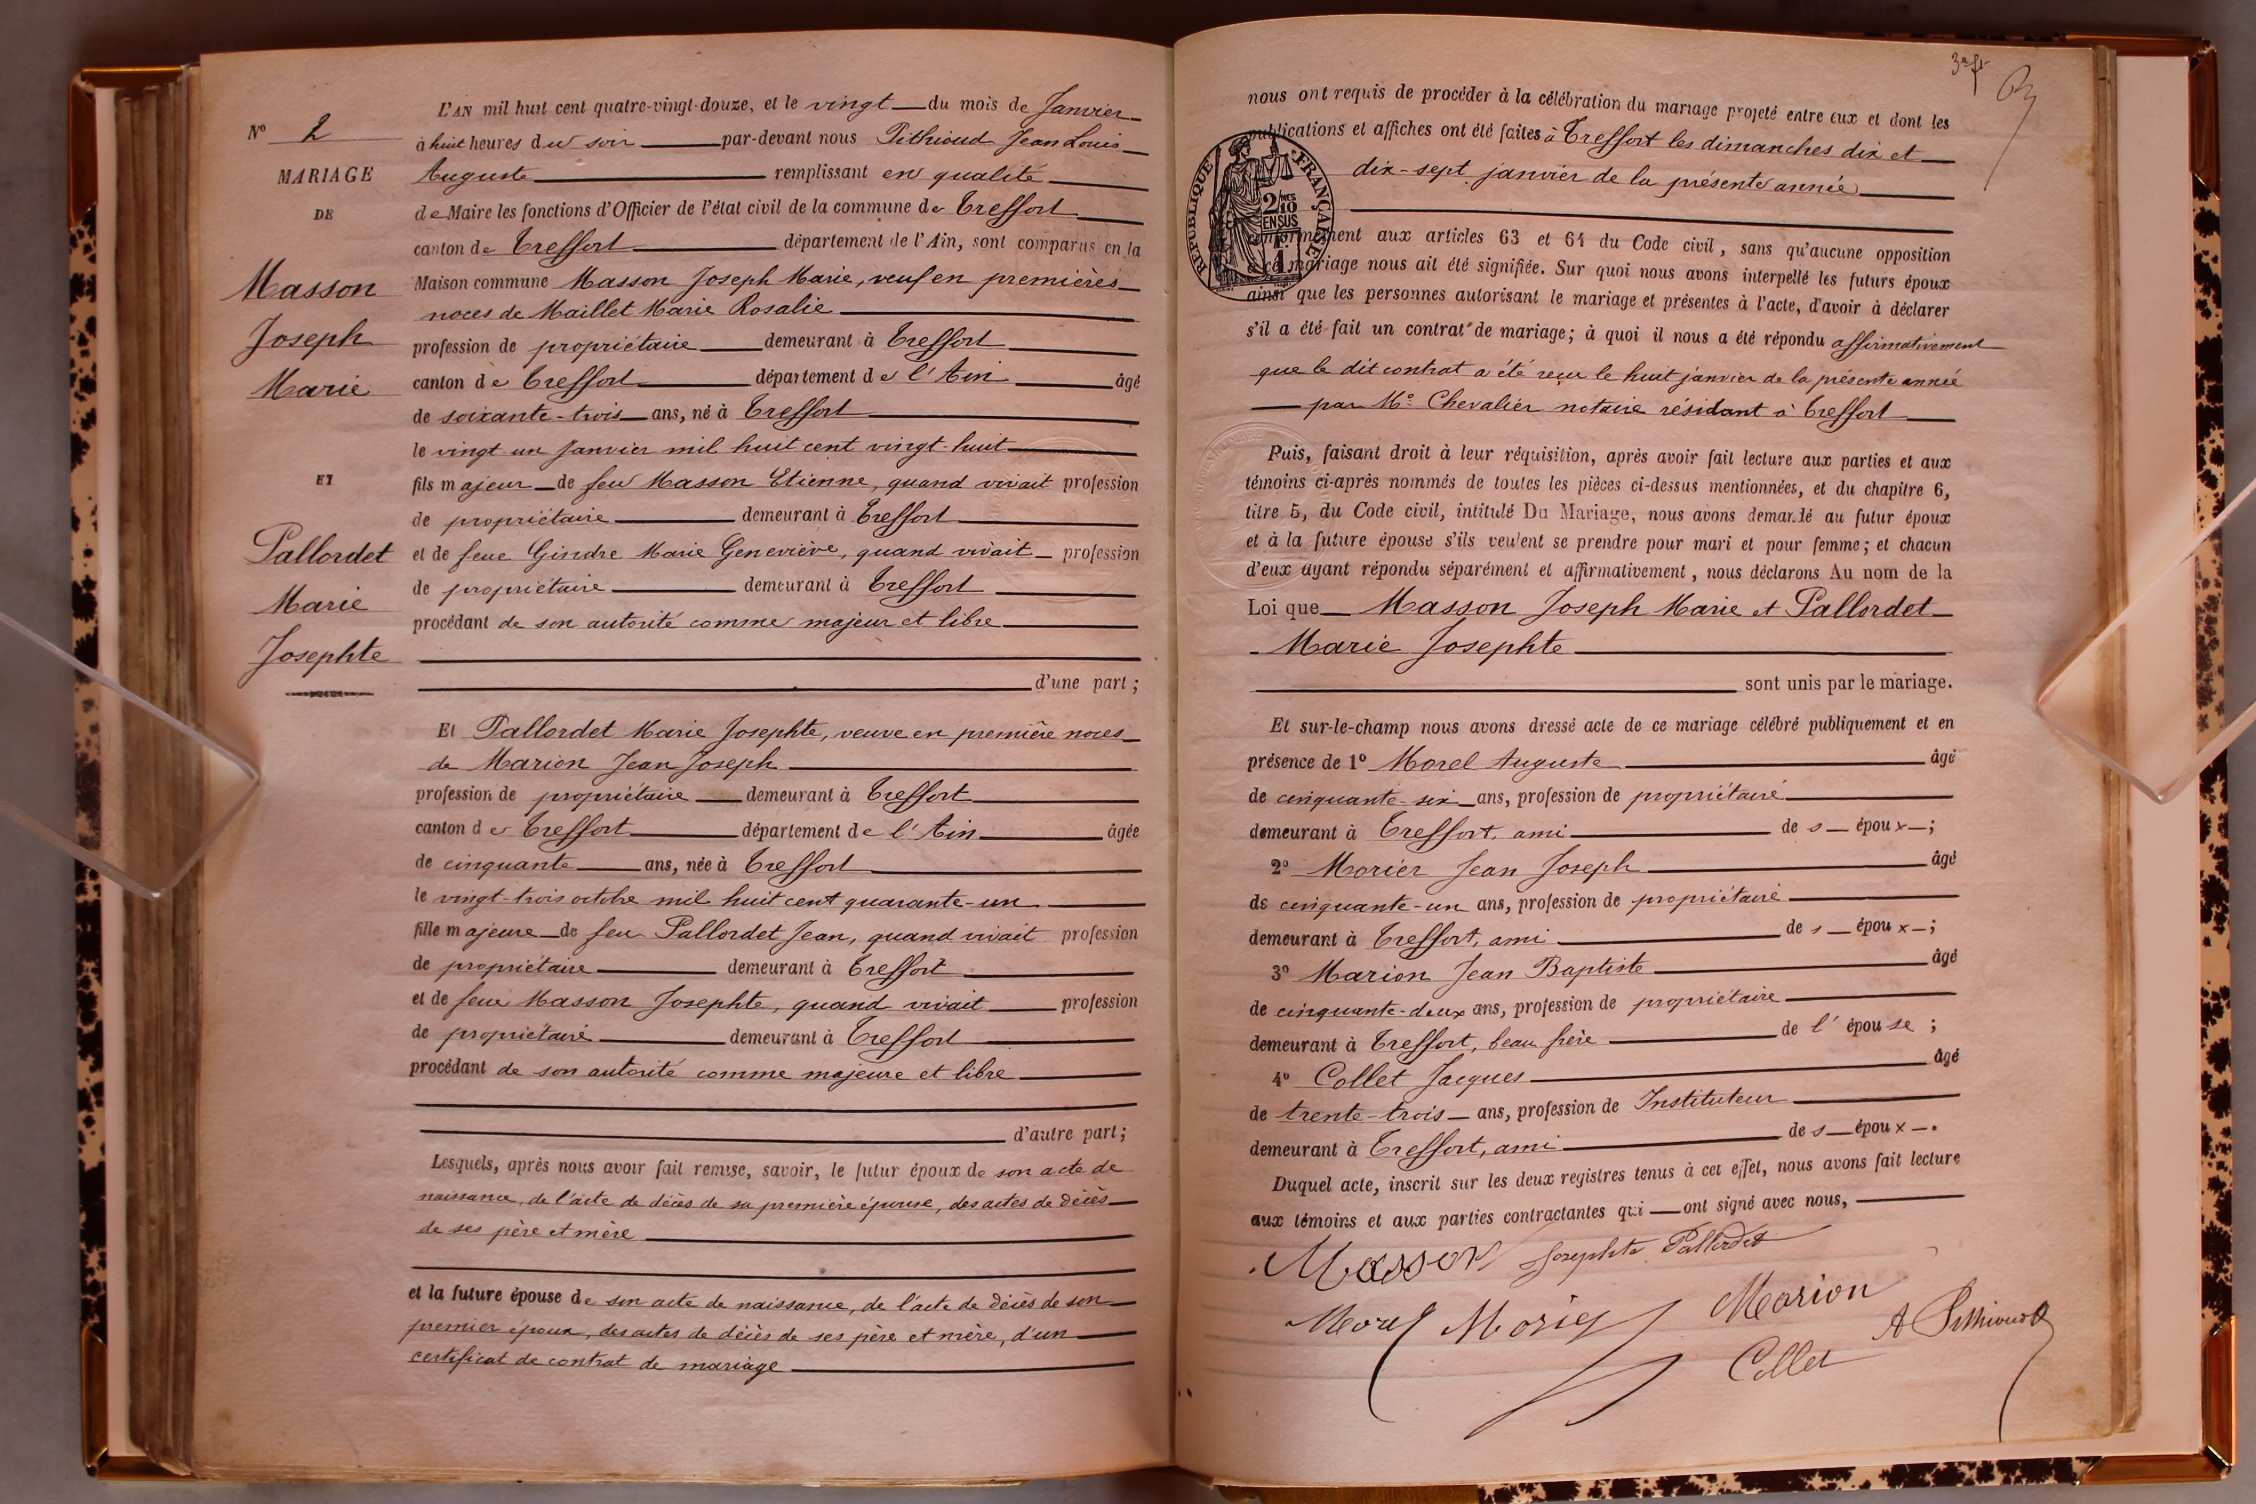 L'AN mil huit cent quatre-vingt-douze, et le vingt du mois de Janvier
N° 2
à huit heures du soir par-devant nous Pithioud Jean Louis
MARIAGE
Auguste remplissant en qualité
DE
de Maire les fonctions d'Officier de l'état civil de la commune de Treffort
canton de Treffort département de l'Ain, sont comparus en la
Masson
Maison commune Masson Joseph Marie, veuf en premières
noces de Maillet Marie Rosalie
Joseph
profession de propriétaire demeurant à Treffort
Marie
canton de Treffort département de l'Ain âgé
de soixante-trois ans, né à Treffort
le vingt un Janvier mil huit cent vingt-huit
ET
fils majeur de feu Masson Etienne, quand vivait profession
de propriétaire demeurant à Treffort
Pallordet
et de feue Gindre Marie Geneviève, quand vivait profession
de propriétaire demeurant à Treffort
Marie
procédant de son autorité comme majeur et libre
Josephte
d'une part;
Et Pallordet Marie Josephte, veuve en première noces
de Marion Jean Joseph
profession de propriétaire demeurant à Treffort
canton de Treffort département de l'Ain âgée
de cinquante ans, née à Treffort
le vingt-trois octobre mil huit cent quarante-un
fille majeure de feu Pallordet Jean, quand vivait profession
de propriétaire demeurant à Treffort
et de feue Masson Josephte, quand vivait profession
de propriétaire demeurant à Treffort
procédant de son autorité comme majeure et libre
d'autre part;
Lesquels, après nous avoir fait remise, savoir, le futur époux de son acte de
naissance, de l'acte de décès de sa première épouse, des actes de décès
de ses père et mère
et la future épouse de son acte de naissance, de l'acte de décès de son
premier époux, des actes de décès de ses père et mère, d'un
certificat de contrat de mariage
nous ont requis de procéder à la célébration du mariage projeté entre eux et dont les
publications et affiches ont été faites à Treffort les dimanches dix et
dix-sept janvier de la présente année
RÉPUBLIQUE FRANÇAISE
2/10 EN SUS
conformément aux articles 63 et 64 du Code civil, sans qu'aucune opposition
à ce mariage nous ait été signifiée. Sur quoi nous avons interpellé les futurs époux
ainsi que les personnes autorisant le mariage et présentes à l'acte, d'avoir à déclarer
s'il a été fait un contrat de mariage; à quoi il nous a été répondu affirmativement
que le dit contrat a été reçu le huit janvier de la présente année
par Me Chevalier notaire résidant à Treffort
Puis, faisant droit à leur réquisition, après avoir fait lecture aux parties et aux
témoins ci-après nommés de toutes les pièces ci-dessus mentionnées, et du chapitre 6,
titre 5, du Code civil, intitulé Du Mariage, nous avons demandé au futur époux
et à la future épouse s'ils veulent se prendre pour mari et pour femme; et chacun
d'eux ayant répondu séparément et affirmativement, nous déclarons Au nom de la
Loi que Masson Joseph Marie et Pallordet
Marie Josephte
sont unis par le mariage.
Et sur-le-champ nous avons dressé acte de ce mariage célébré publiquement et en
présence de 1° Morel Auguste âgé
de cinquante-six ans, profession de propriétaire
demeurant à Treffort, ami des époux;
2° Morier Jean Joseph âgé
de cinquante-un ans, profession de propriétaire
demeurant à Treffort, ami des époux;
3° Marion Jean Baptiste âgé
de cinquante-deux ans, profession de propriétaire
demeurant à Treffort, beau frère de l'épouse;
4° Collet Jacques âgé
de trente-trois ans, profession de Instituteur
demeurant à Treffort, ami des époux.
Duquel acte, inscrit sur les deux registres tenus à cet effet, nous avons fait lecture
aux témoins et aux parties contractantes qui ont signé avec nous,
Masson Josephte Pallordet
Morel Morier Marion
Collet A Pithioud